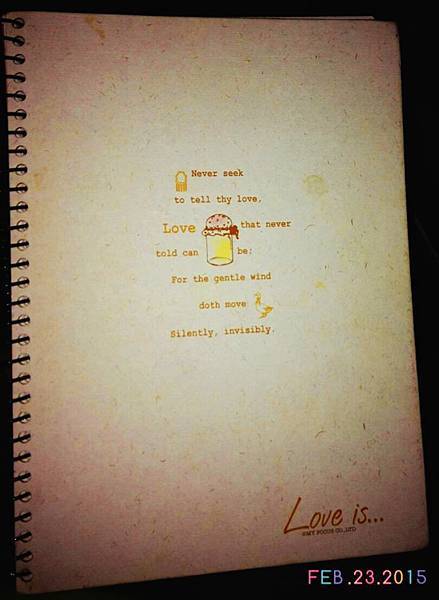 Never seek
to tell thy love,
Love that never
told can be;
For the gentle wind
doth move
Silently, invisibly.
Love is...
©MY FOCUS CO.,LTD
FEB.23.2015